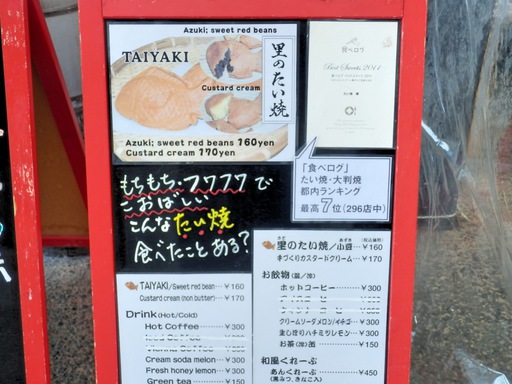 Azuki; sweet red beans
TAIYAKI
Custard cream
里のたい焼
Azuki; sweet red beans 160yen
Custard cream 170yen
食べログ
Best Sweets 2011
「食べログ」
たい焼・大判焼
都内ランキング
最高7位(296店中)
もちもち・フワフワで
こおばしい
こんなたい焼
食べたことある?
TAIYAKI/Sweet red bean… ¥160
Custard cream (non butter)… ¥170
Drink(Hot/Cold)
Hot Coffee ¥300
Cream soda melon… ¥350
Fresh honey lemon ¥300
Green tea ¥150
里のたい焼/小倉… ¥160
手づくりカスタードクリーム… ¥170
お飲物(温/冷)
ホットコーヒー ¥300
クリームソーダメロン/イチゴ… ¥300
生し搾りハチミツレモン… ¥300
お茶(温/冷)缶 ¥150
和風くれーぷ
あんくれーぷ ¥450
(黒みつ、きなこ入)